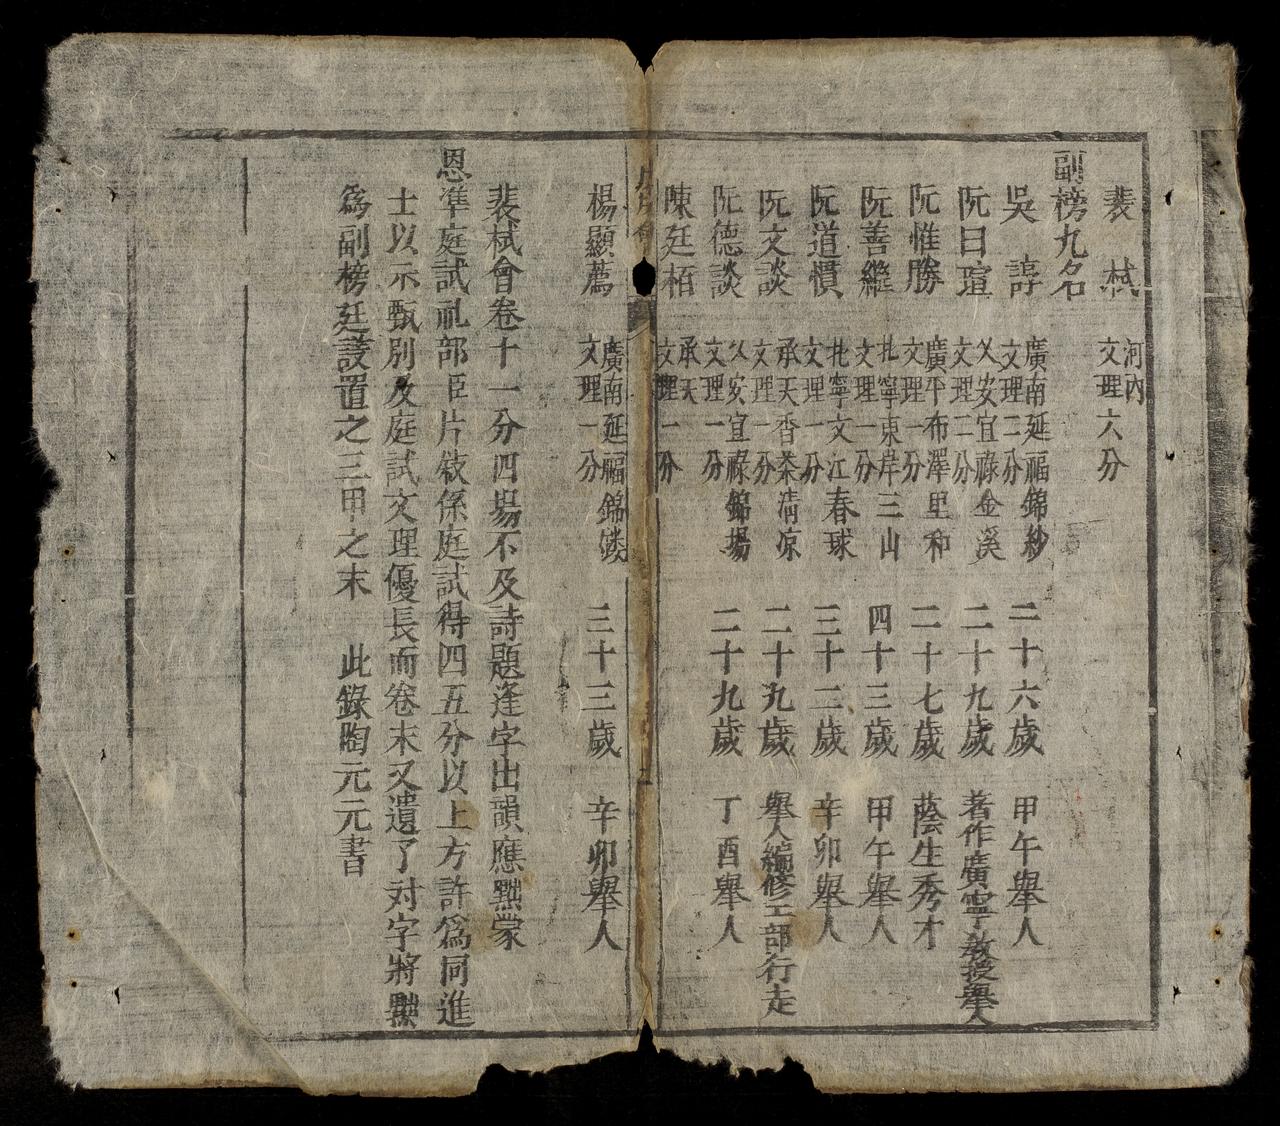 裴 栻 河内 文理六分
副榜九名
吳 諄 廣南延福錦紗 文理二分 二十六歲 甲午舉人
阮曰瑄 乂安宜祿金溪 文理二分 二十九歲 著作廣寧教授舉人
阮惟勝 廣平布澤里和 文理一分 二十七歲 蔭生秀才
阮善繼 北寧東岸三山 文理一分 四十三歲 甲午舉人
阮道慣 北寧文江春球 文理一分 三十二歲 辛卯舉人
阮文談 承天香茶清凉 文理一分 二十九歲 舉人編修工部行走
阮德談 乂安宜祿錦場 文理一分 二十九歲 丁酉舉人
陳廷栢 承天 文理一分
二
楊顯薦 廣南延福錦 文理一分 三十三歲 辛卯舉人
裴栻會卷十一分四場不及詩題逢字出韻應黜蒙
恩準庭試礼部臣片敘係庭試得四五分以上方許為同進
士以示甄別及庭試文理優長而卷末又遺了対字將黜
為副榜廷議置之三甲之末 此錄陶元元書